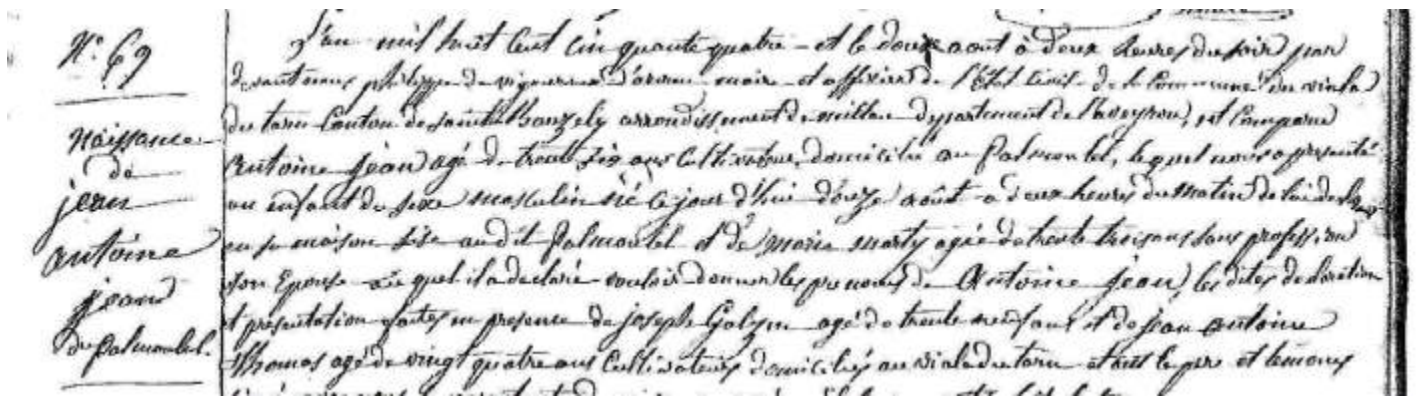 N° 69
naissance
de
jean
antoine
jean
du Palmontel.
L'an mil huit cent cinquante quatre et le douze aout à deux heures du soir par
devant nous philippe de maire et officier de l'Etat Civil de la Commune du viala
du tarn Canton de arrondissement de millau departement de l'aveyron, est Comparu
Antoine Jean agé de trente six ans Cultivateur domicilié au Palmontel, lequel nous a presenté
un enfant du sexe masculin né ce jour d'hui douze août a deux heures du matin de lui
en sa maison sise au dit Palmontel et de marie marty agée de trente trois ans sans profession
son Epouse au quel il a declaré vouloir donner les prenoms de Antoine Jean, les dites declaration
et presentation faites en presence de joseph agé de trente neuf ans et de jean antoine
Thomas agé de vingt quatre ans Cultivateurs domiciliés au viala du tarn et ont le pere et temoins